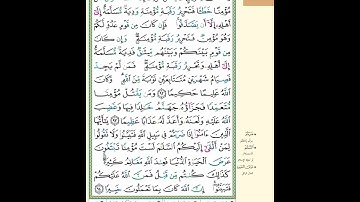 مُؤْمِنًا خَطَـًٔا فَتَحْرِيرُ رَقَبَةٍ مُّؤْمِنَةٍ وَدِيَةٌ مُّسَلَّمَةٌ إِلَىٰٓ
أَهْلِهِۦٓ إِلَّآ أَن يَصَّدَّقُوا۟ ۚ فَإِن كَانَ مِن قَوْمٍ عَدُوٍّ لَّكُمْ
وَهُوَ مُؤْمِنٌ فَتَحْرِيرُ رَقَبَةٍ مُّؤْمِنَةٍ ۖ وَإِن كَانَ
مِن قَوْمٍۭ بَيْنَكُمْ وَبَيْنَهُم مِّيثَـٰقٌ فَدِيَةٌ مُّسَلَّمَةٌ
إِلَىٰٓ أَهْلِهِۦ وَتَحْرِيرُ رَقَبَةٍ مُّؤْمِنَةٍ ۖ فَمَن لَّمْ يَجِدْ
فَصِيَامُ شَهْرَيْنِ مُتَتَابِعَيْنِ تَوْبَةً مِّنَ ٱللَّهِ ۗ وَكَانَ
ٱللَّهُ عَلِيمًا حَكِيمًا ٩٢ وَمَن يَقْتُلْ مُؤْمِنًا
مُّتَعَمِّدًا فَجَزَآؤُهُۥ جَهَنَّمُ خَـٰلِدًا فِيهَا وَغَضِبَ
ٱللَّهُ عَلَيْهِ وَلَعَنَهُۥ وَأَعَدَّ لَهُۥ عَذَابًا عَظِيمًا ٩٣ يَـٰٓأَيُّهَا
ٱلَّذِينَ ءَامَنُوٓا۟ إِذَا ضَرَبْتُمْ فِى سَبِيلِ ٱللَّهِ فَتَبَيَّنُوا۟ وَلَا تَقُولُوا۟
لِمَنْ أَلْقَىٰٓ إِلَيْكُمُ ٱلسَّلَـٰمَ لَسْتَ مُؤْمِنًا تَبْتَغُونَ
عَرَضَ ٱلْحَيَوٰةِ ٱلدُّنْيَا فَعِندَ ٱللَّهِ مَغَانِمُ كَثِيرَةٌ ۚ
كَذَٰلِكَ كُنتُم مِّن قَبْلُ فَمَنَّ ٱللَّهُ عَلَيْكُمْ
فَتَبَيَّنُوٓا۟ ۚ إِنَّ ٱللَّهَ كَانَ بِمَا تَعْمَلُونَ خَبِيرًا ٩٤